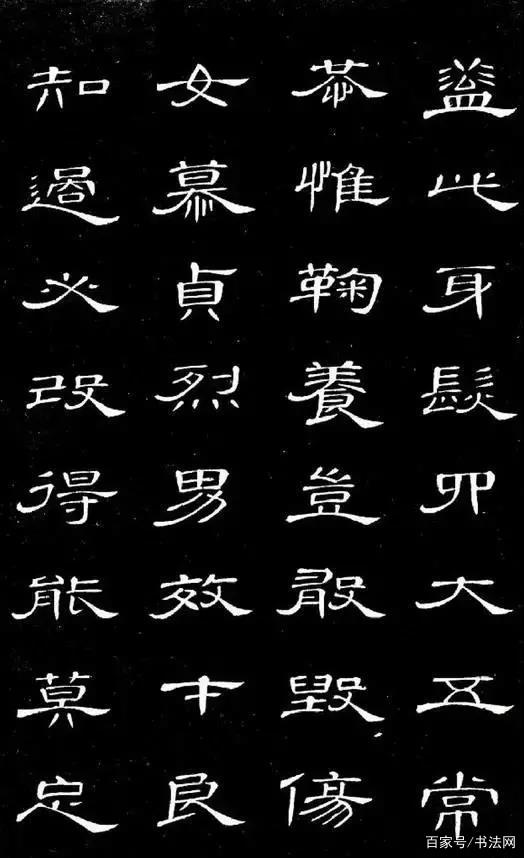 蓋此身髮四大五常
恭惟鞠養豈敢毀傷
女慕貞烈男效才良
知過必改得能莫忘
百家号/书法网